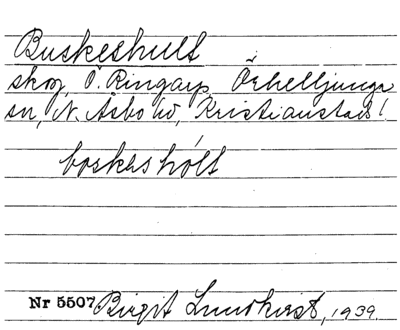 Buskeshult
skog, Ö. Ringarp, Örkelljunga
sn, N. Åsbo hd, Kristianstads l.
boskashólt
Nr 5507. Birgit Lundkvist, 1939.